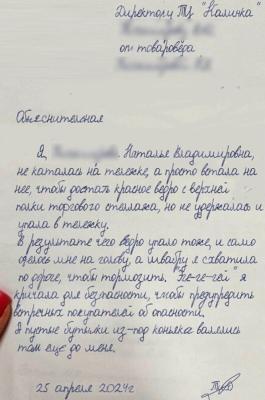 Директору ТЦ "Калинка"
от товароведа
Объяснительная
Я, Наталья Владимировна,
не каталась на тележке, а просто встала на
нее, чтобы достать красное ведро с верхней
полки торгового стеллажа, но не удержалась и
упала в тележку.
В результате чего ведро упало тоже, и само
оделось мне на голову, а швабру я схватила
по дороге, чтобы тормозить. "Йе-ге-гей" я
кричала для безопасности, чтобы предупредить
встречных покупателей об опасности.
А пустые бутылки из-под коньяка валялись
там еще до меня.
25 апреля 2024г